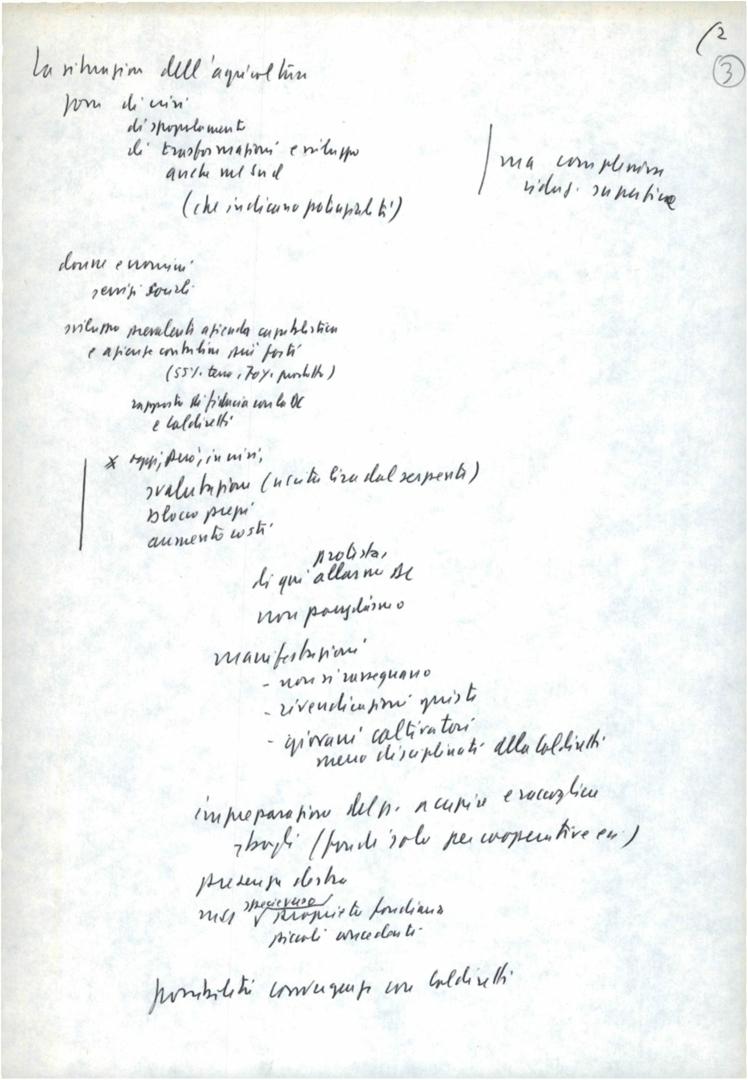 (2
3
La situazione dell'agricoltura
zone di crisi
di spopolamento
di trasformazioni e sviluppo
anche nel Sud
(che indicano potenzialità)
ma complessiva
riduz. superficie
donne e uomini
servizi sociali
sviluppo prevalente azienda capitalistica
e aziende contadine più forti
(55% terra, 70% prodotto)
rapporto di fiducia con la DC
e Coldiretti
x oggi, però, in crisi,
svalutazione (uscita lira dal serpente)
blocco prezzi
aumento costi
protesta,
di qui allarme DC
non poujadismo
manifestazioni
- non si rassegnano
- rivendicazioni giuste
- giovani coltivatori
meno disciplinati alla Coldiretti
impreparazione del p. a capire e raccogliere
sbagli (fondi solo per cooperative ecc)
presenza destra
MSI specie verso
proprietà fondiaria
piccoli concedenti
possibilità convergenze con Coldiretti